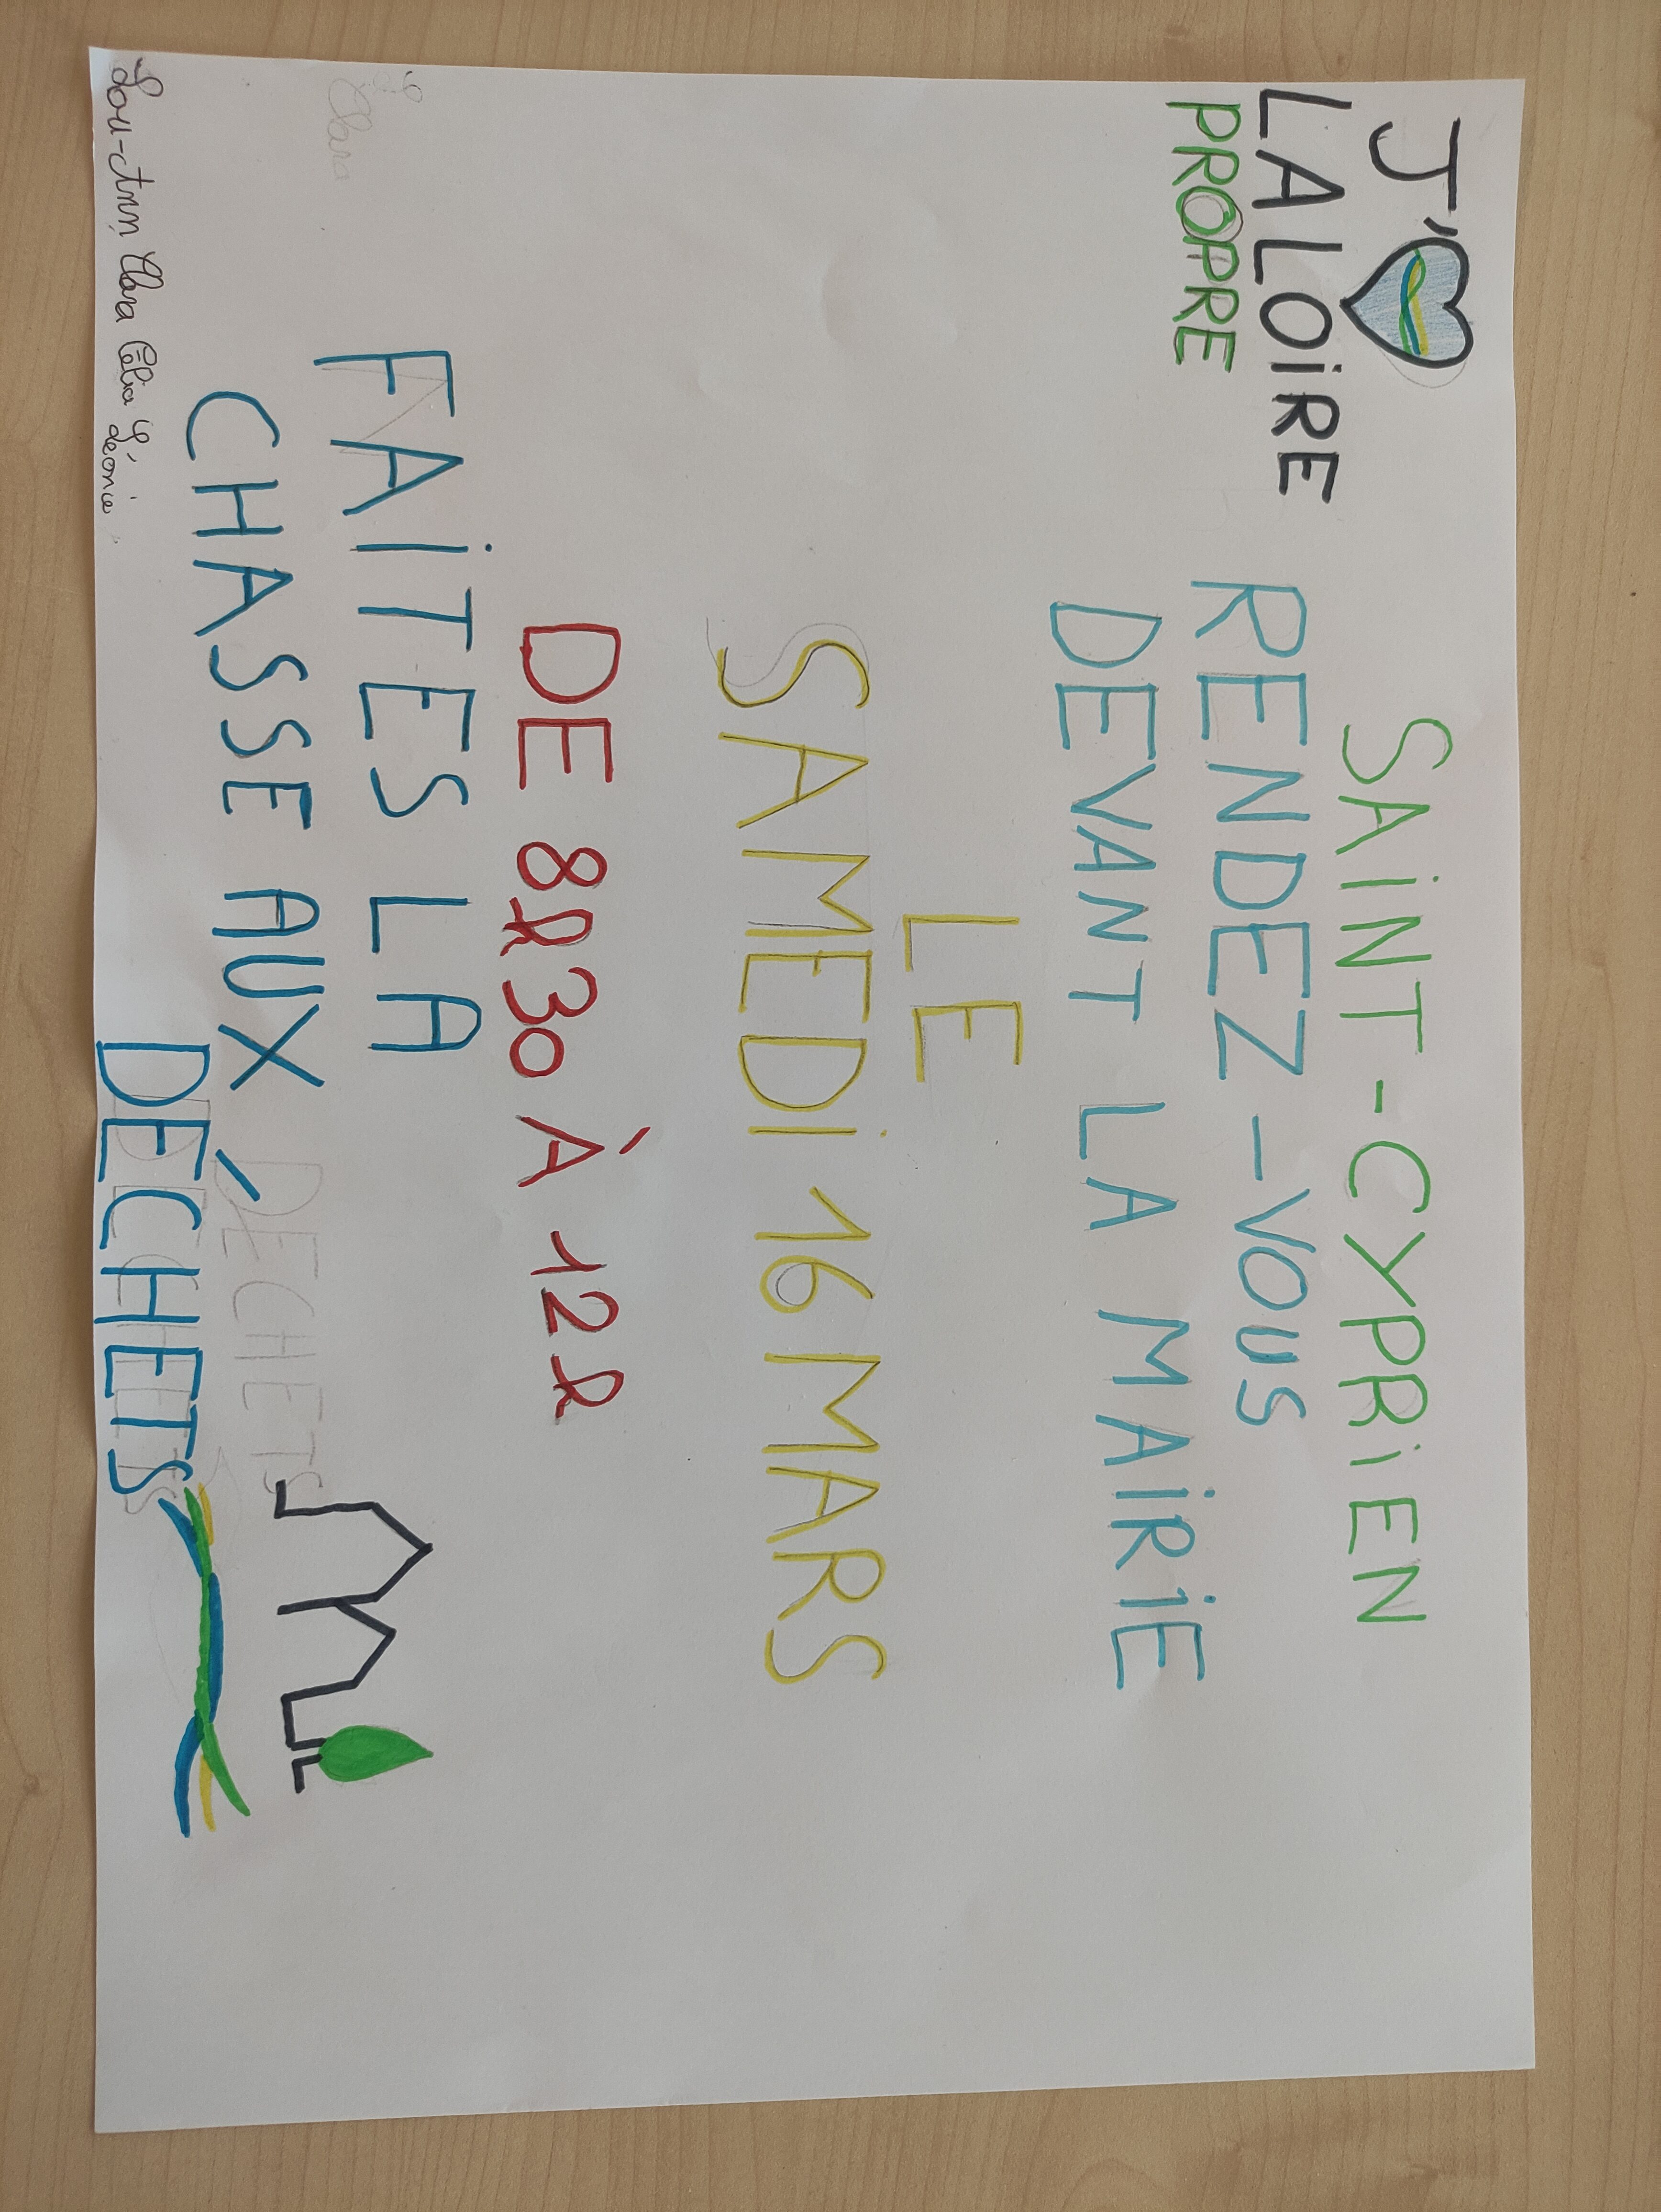 J'
LA LOiRE
PROPRE
SAiNT-CYPRiEN
RENDEZ-VOUS
DEVANT LA MAiRiE
LE
SAMEDi 16 MARS
DE 8h30 À 12h
FAiTES LA
CHASSE AUX
DÉCHETS
DÉCHETS
Clara
Lou-Ann Clara Célia
Léonie